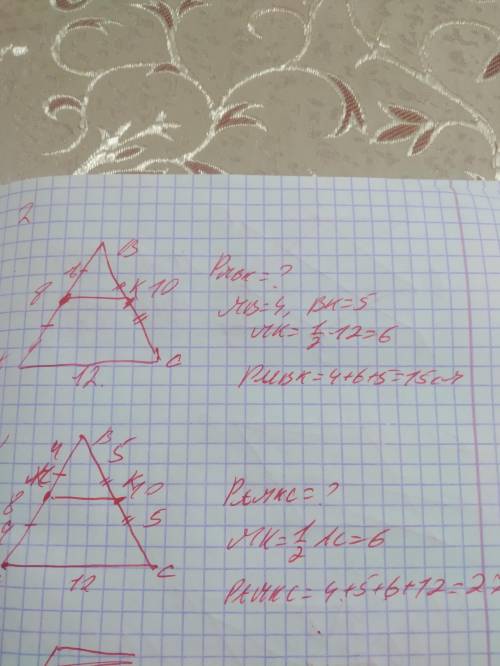 2
B
8
K 10
C
12
PМВК=?
МВ=4, ВК=5
МК=1/2·12=6
PМВК=4+6+5=15см
B
4
5
M
K
10
8
4
5
C
12
PАМКС=?
МК=1/2 АС=6
PАМКС=4+5+6+12=27